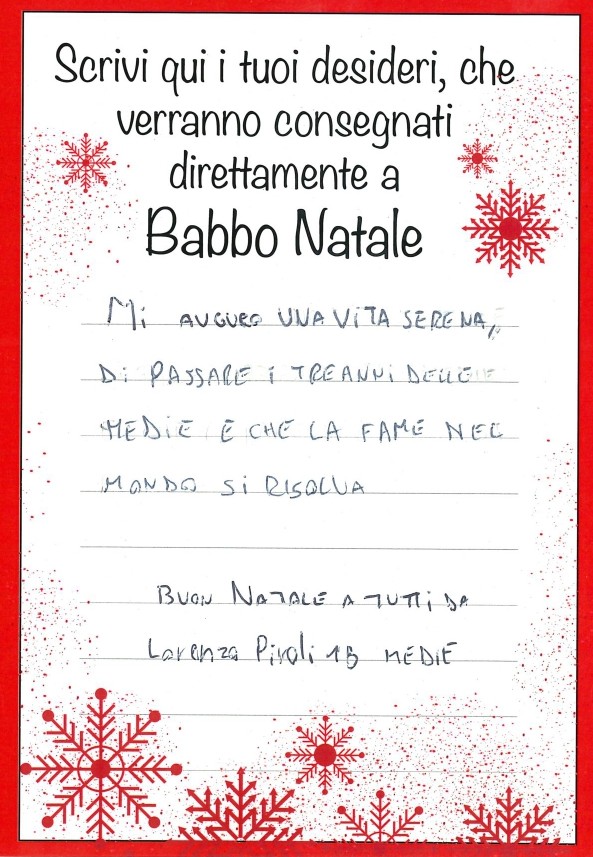 Scrivi qui i tuoi desideri, che
verranno consegnati
direttamente a
Babbo Natale
Mi AUGURO UNA VITA SERENA,
Di PASSARE i TRE ANNi DELLE
MEDiE E CHE LA FAME NEL
MONDO Si RISOLVA
BUON NATALE A TUTTi DA
Lorenzo Piroli 1B MEDIE